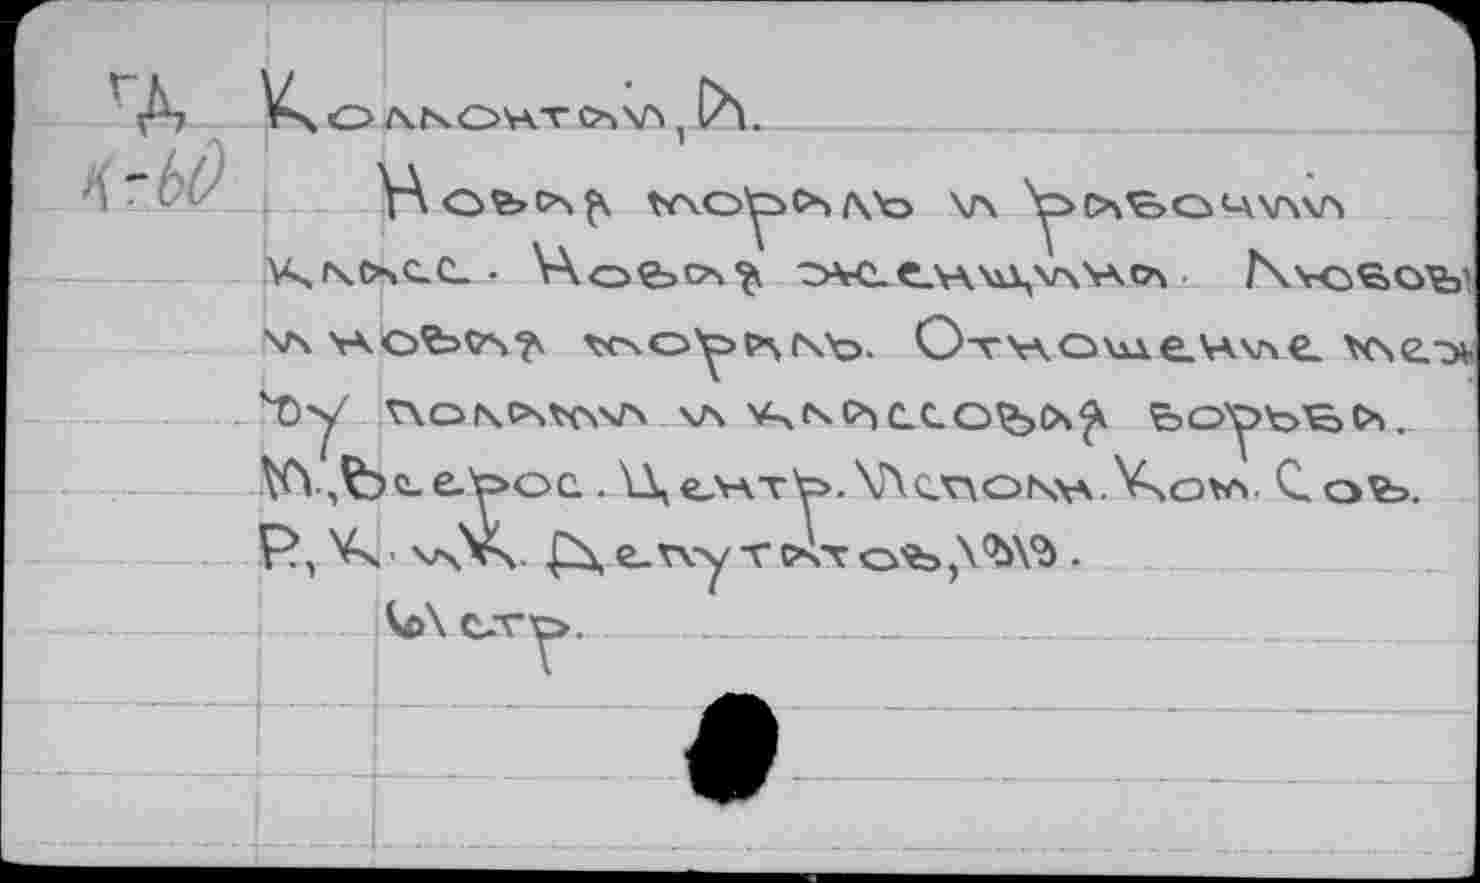 Д Коллонтай, А.
К-60 Новая мораль и рабочий
класс. Новая женщина. Любовь
и новая мораль. Отношение меж
ду полами и классовая борьба.
М., Всерос. Центр. Исполн. Ком. Сов.
Р., К. и К. Депутатов, 1919.
61 стр.